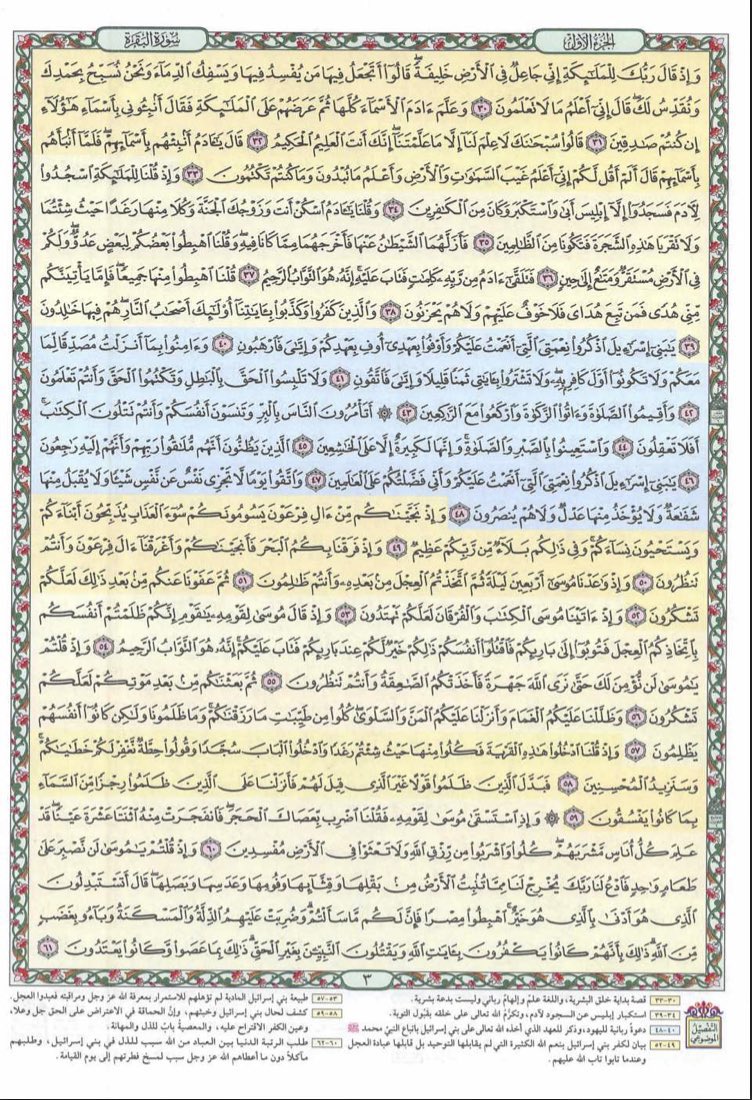 الجزء الأول
سورة البقرة
وَإِذْ قَالَ رَبُّكَ لِلْمَلَٰٓئِكَةِ إِنِّي جَاعِلٌ فِي الْأَرْضِ خَلِيفَةً ۖ قَالُوٓا۟ أَتَجْعَلُ فِيهَا مَن يُفْسِدُ فِيهَا وَيَسْفِكُ الدِّمَآءَ وَنَحْنُ نُسَبِّحُ بِحَمْدِكَ
وَنُقَدِّسُ لَكَ ۖ قَالَ إِنِّيٓ أَعْلَمُ مَا لَا تَعْلَمُونَ ٣٠ وَعَلَّمَ ءَادَمَ الْأَسْمَآءَ كُلَّهَا ثُمَّ عَرَضَهُمْ عَلَى الْمَلَٰٓئِكَةِ فَقَالَ أَنۢبِـُٔونِي بِأَسْمَآءِ هَٰٓؤُلَآءِ
إِن كُنتُمْ صَٰدِقِينَ ٣١ قَالُوا۟ سُبْحَٰنَكَ لَا عِلْمَ لَنَآ إِلَّا مَا عَلَّمْتَنَآ ۖ إِنَّكَ أَنتَ الْعَلِيمُ الْحَكِيمُ ٣٢ قَالَ يَٰٓـَٔادَمُ أَنۢبِئْهُم بِأَسْمَآئِهِمْ ۖ فَلَمَّآ أَنۢبَأَهُم
بِأَسْمَآئِهِمْ قَالَ أَلَمْ أَقُل لَّكُمْ إِنِّيٓ أَعْلَمُ غَيْبَ السَّمَٰوَٰتِ وَالْأَرْضِ وَأَعْلَمُ مَا تُبْدُونَ وَمَا كُنتُمْ تَكْتُمُونَ ٣٣ وَإِذْ قُلْنَا لِلْمَلَٰٓئِكَةِ اسْجُدُوا۟
لِـَٔادَمَ فَسَجَدُوٓا۟ إِلَّآ إِبْلِيسَ أَبَىٰ وَاسْتَكْبَرَ وَكَانَ مِنَ الْكَٰفِرِينَ ٣٤ وَقُلْنَا يَٰٓـَٔادَمُ اسْكُنْ أَنتَ وَزَوْجُكَ الْجَنَّةَ وَكُلَا مِنْهَا رَغَدًا حَيْثُ شِئْتُمَا
وَلَا تَقْرَبَا هَٰذِهِ الشَّجَرَةَ فَتَكُونَا مِنَ الظَّٰلِمِينَ ٣٥ فَأَزَلَّهُمَا الشَّيْطَٰنُ عَنْهَا فَأَخْرَجَهُمَا مِمَّا كَانَا فِيهِ ۖ وَقُلْنَا اهْبِطُوا۟ بَعْضُكُمْ لِبَعْضٍ عَدُوٌّ ۖ وَلَكُمْ
فِي الْأَرْضِ مُسْتَقَرٌّ وَمَتَٰعٌ إِلَىٰ حِينٍ ٣٦ فَتَلَقَّىٰٓ ءَادَمُ مِن رَّبِّهِۦ كَلِمَٰتٍ فَتَابَ عَلَيْهِ ۚ إِنَّهُۥ هُوَ التَّوَّابُ الرَّحِيمُ ٣٧ قُلْنَا اهْبِطُوا۟ مِنْهَا جَمِيعًا ۖ فَإِمَّا يَأْتِيَنَّكُم
مِّنِّي هُدًى فَمَن تَبِعَ هُدَايَ فَلَا خَوْفٌ عَلَيْهِمْ وَلَا هُمْ يَحْزَنُونَ ٣٨ وَالَّذِينَ كَفَرُوا۟ وَكَذَّبُوا۟ بِـَٔايَٰتِنَآ أُو۟لَٰٓئِكَ أَصْحَٰبُ النَّارِ ۖ هُمْ فِيهَا خَٰلِدُونَ
٣٩ يَٰبَنِيٓ إِسْرَٰٓءِيلَ اذْكُرُوا۟ نِعْمَتِيَ الَّتِيٓ أَنْعَمْتُ عَلَيْكُمْ وَأَوْفُوا۟ بِعَهْدِيٓ أُوفِ بِعَهْدِكُمْ وَإِيَّٰيَ فَارْهَبُونِ ٤٠ وَءَامِنُوا۟ بِمَآ أَنزَلْتُ مُصَدِّقًا لِّمَا
مَعَكُمْ وَلَا تَكُونُوٓا۟ أَوَّلَ كَافِرٍۭ بِهِۦ ۖ وَلَا تَشْتَرُوا۟ بِـَٔايَٰتِي ثَمَنًا قَلِيلًا وَإِيَّٰيَ فَاتَّقُونِ ٤١ وَلَا تَلْبِسُوا۟ الْحَقَّ بِالْبَٰطِلِ وَتَكْتُمُوا۟ الْحَقَّ وَأَنتُمْ تَعْلَمُونَ
٤٢ وَأَقِيمُوا۟ الصَّلَوٰةَ وَءَاتُوا۟ الزَّكَوٰةَ وَارْكَعُوا۟ مَعَ الرَّٰكِعِينَ ٤٣ ۞ أَتَأْمُرُونَ النَّاسَ بِالْبِرِّ وَتَنسَوْنَ أَنفُسَكُمْ وَأَنتُمْ تَتْلُونَ الْكِتَٰبَ ۚ
أَفَلَا تَعْقِلُونَ ٤٤ وَاسْتَعِينُوا۟ بِالصَّبْرِ وَالصَّلَوٰةِ ۚ وَإِنَّهَا لَكَبِيرَةٌ إِلَّا عَلَى الْخَٰشِعِينَ ٤٥ الَّذِينَ يَظُنُّونَ أَنَّهُم مُّلَٰقُوا۟ رَبِّهِمْ وَأَنَّهُمْ إِلَيْهِ رَٰجِعُونَ
٤٦ يَٰبَنِيٓ إِسْرَٰٓءِيلَ اذْكُرُوا۟ نِعْمَتِيَ الَّتِيٓ أَنْعَمْتُ عَلَيْكُمْ وَأَنِّي فَضَّلْتُكُمْ عَلَى الْعَٰلَمِينَ ٤٧ وَاتَّقُوا۟ يَوْمًا لَّا تَجْزِي نَفْسٌ عَن نَّفْسٍ شَيْـًٔا وَلَا يُقْبَلُ مِنْهَا
شَفَٰعَةٌ وَلَا يُؤْخَذُ مِنْهَا عَدْلٌ وَلَا هُمْ يُنصَرُونَ ٤٨ وَإِذْ نَجَّيْنَٰكُم مِّنْ ءَالِ فِرْعَوْنَ يَسُومُونَكُمْ سُوٓءَ الْعَذَابِ يُذَبِّحُونَ أَبْنَآءَكُمْ
وَيَسْتَحْيُونَ نِسَآءَكُمْ ۚ وَفِي ذَٰلِكُم بَلَآءٌ مِّن رَّبِّكُمْ عَظِيمٌ ٤٩ وَإِذْ فَرَقْنَا بِكُمُ الْبَحْرَ فَأَنجَيْنَٰكُمْ وَأَغْرَقْنَآ ءَالَ فِرْعَوْنَ وَأَنتُمْ
تَنظُرُونَ ٥٠ وَإِذْ وَٰعَدْنَا مُوسَىٰٓ أَرْبَعِينَ لَيْلَةً ثُمَّ اتَّخَذْتُمُ الْعِجْلَ مِنۢ بَعْدِهِۦ وَأَنتُمْ ظَٰلِمُونَ ٥١ ثُمَّ عَفَوْنَا عَنكُم مِّنۢ بَعْدِ ذَٰلِكَ لَعَلَّكُمْ
تَشْكُرُونَ ٥٢ وَإِذْ ءَاتَيْنَا مُوسَى الْكِتَٰبَ وَالْفُرْقَانَ لَعَلَّكُمْ تَهْتَدُونَ ٥٣ وَإِذْ قَالَ مُوسَىٰ لِقَوْمِهِۦ يَٰقَوْمِ إِنَّكُمْ ظَلَمْتُمْ أَنفُسَكُم
بِاتِّخَاذِكُمُ الْعِجْلَ فَتُوبُوٓا۟ إِلَىٰ بَارِئِكُمْ فَاقْتُلُوٓا۟ أَنفُسَكُمْ ذَٰلِكُمْ خَيْرٌ لَّكُمْ عِندَ بَارِئِكُمْ فَتَابَ عَلَيْكُمْ ۚ إِنَّهُۥ هُوَ التَّوَّابُ الرَّحِيمُ ٥٤ وَإِذْ قُلْتُمْ
يَٰمُوسَىٰ لَن نُّؤْمِنَ لَكَ حَتَّىٰ نَرَى اللَّهَ جَهْرَةً فَأَخَذَتْكُمُ الصَّٰعِقَةُ وَأَنتُمْ تَنظُرُونَ ٥٥ ثُمَّ بَعَثْنَٰكُم مِّنۢ بَعْدِ مَوْتِكُمْ لَعَلَّكُمْ
تَشْكُرُونَ ٥٦ وَظَلَّلْنَا عَلَيْكُمُ الْغَمَامَ وَأَنزَلْنَا عَلَيْكُمُ الْمَنَّ وَالسَّلْوَىٰ ۖ كُلُوا۟ مِن طَيِّبَٰتِ مَا رَزَقْنَٰكُمْ ۖ وَمَا ظَلَمُونَا وَلَٰكِن كَانُوٓا۟ أَنفُسَهُمْ
يَظْلِمُونَ ٥٧ وَإِذْ قُلْنَا ادْخُلُوا۟ هَٰذِهِ الْقَرْيَةَ فَكُلُوا۟ مِنْهَا حَيْثُ شِئْتُمْ رَغَدًا وَادْخُلُوا۟ الْبَابَ سُجَّدًا وَقُولُوا۟ حِطَّةٌ نَّغْفِرْ لَكُمْ خَطَٰيَٰكُمْ ۚ
وَسَنَزِيدُ الْمُحْسِنِينَ ٥٨ فَبَدَّلَ الَّذِينَ ظَلَمُوا۟ قَوْلًا غَيْرَ الَّذِي قِيلَ لَهُمْ فَأَنزَلْنَا عَلَى الَّذِينَ ظَلَمُوا۟ رِجْزًا مِّنَ السَّمَآءِ
بِمَا كَانُوا۟ يَفْسُقُونَ ٥٩ ۞ وَإِذِ اسْتَسْقَىٰ مُوسَىٰ لِقَوْمِهِۦ فَقُلْنَا اضْرِب بِّعَصَاكَ الْحَجَرَ ۖ فَانفَجَرَتْ مِنْهُ اثْنَتَا عَشْرَةَ عَيْنًا ۖ قَدْ
عَلِمَ كُلُّ أُنَاسٍ مَّشْرَبَهُمْ ۖ كُلُوا۟ وَاشْرَبُوا۟ مِن رِّزْقِ اللَّهِ وَلَا تَعْثَوْا۟ فِي الْأَرْضِ مُفْسِدِينَ ٦٠ وَإِذْ قُلْتُمْ يَٰمُوسَىٰ لَن نَّصْبِرَ عَلَىٰ
طَعَامٍ وَٰحِدٍ فَادْعُ لَنَا رَبَّكَ يُخْرِجْ لَنَا مِمَّا تُنۢبِتُ الْأَرْضُ مِنۢ بَقْلِهَا وَقِثَّآئِهَا وَفُومِهَا وَعَدَسِهَا وَبَصَلِهَا ۖ قَالَ أَتَسْتَبْدِلُونَ
الَّذِي هُوَ أَدْنَىٰ بِالَّذِي هُوَ خَيْرٌ ۚ اهْبِطُوا۟ مِصْرًا فَإِنَّ لَكُم مَّا سَأَلْتُمْ ۗ وَضُرِبَتْ عَلَيْهِمُ الذِّلَّةُ وَالْمَسْكَنَةُ وَبَآءُو بِغَضَبٍ
مِّنَ اللَّهِ ۗ ذَٰلِكَ بِأَنَّهُمْ كَانُوا۟ يَكْفُرُونَ بِـَٔايَٰتِ اللَّهِ وَيَقْتُلُونَ النَّبِيِّـۧنَ بِغَيْرِ الْحَقِّ ۗ ذَٰلِكَ بِمَا عَصَوا۟ وَّكَانُوا۟ يَعْتَدُونَ ٦١
٣
التفصيل الموضوعي
٣٠-٣٣ قصة بداية خلق البشرية، واللغة علمٌ وإلهامٌ رباني وليست بدعة بشرية.
٣٤-٣٩ استكبار إبليس عن السجود لآدم، وتكرُّم الله تعالى على خلقه بقَبول التوبة.
٤٠-٤٨ دعوةٌ ربانية لليهود، وذكر للعهد الذي أخذه الله تعالى على بني إسرائيل باتباع النبيِّ محمد ﷺ
٤٩-٥٢ بيان لكفر بني إسرائيل بنعم الله الكثيرة التي لم يقابلها التوحيد بل قابلها عبادة العجل
وعندما تابوا تاب الله عليهم.
٥٣-٥٧ طبيعة بني إسرائيل المادية لم تؤهلهم للاستمرار بمعرفة الله عز وجل ومراقبته فعبدوا العجل.
٥٨-٥٩ كشف لحال بني إسرائيل وخبثهم، وإنَّ الحماقة في الاعتراض على الحق جل وعلا،
وعين الكفر الاقتراح عليه، والمعصيةُ بابُ للذل والمهانة.
٦٠-٦٢ طلب الرتبة الدنيا بين العباد من الله سبب للذل في بني إسرائيل، وطلبهم
مأكلاً دون ما أعطاهم الله عز وجل سبب لمسخ فطرتهم إلى يوم القيامة.